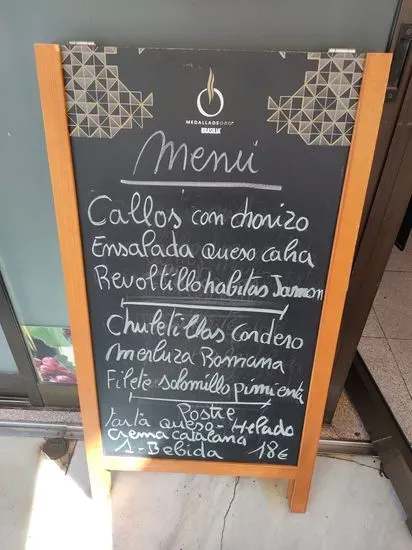 MEDALLADEORO
BRASILIA
Menú
Callos con chorizo
Ensalada queso caha
Revoltillo habitas Jamon
Chuletillas Cordero
Merluza Romana
Filete solomillo pimienta
Postre
tarta queso - Helado
Crema catalana
1 - Bebida 18€